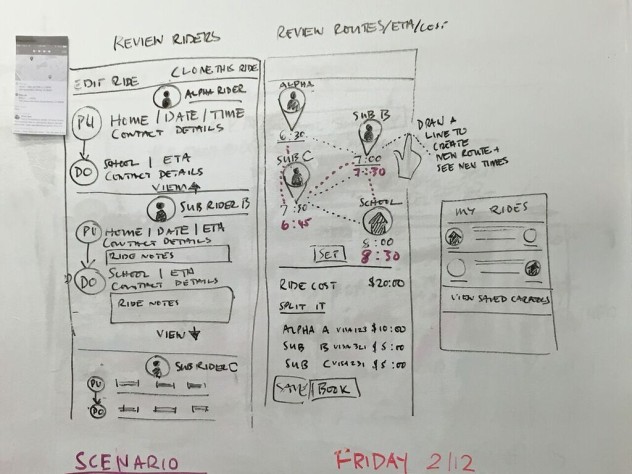 REVIEW RIDERS
EDIT RIDE
CLONE THIS RIDE
ALPHA RIDER
PU
HOME / DATE / TIME
CONTACT DETAILS
DO
SCHOOL | ETA
CONTACT DETAILS
VIEW
SUB RIDER B
PU
HOME | DATE | ETA
CONTACT DETAILS
RIDE NOTES
DO
SCHOOL | ETA
CONTACT DETAILS
RIDE NOTES
VIEW
SUB RIDER C
PU
DO
SCENARIO
REVIEW ROUTES/ETA/COST
ALPHA
6:30
SUB B
7:00
7:30
SUB C
7:30
6:45
SCHOOL
8:00
8:30
SET
DRAW A
LINE TO
CREATE
NEW ROUTE +
SEE NEW TIMES
RIDE COST $20:00
SPLIT IT
ALPHA A VISA 123 $10:00
SUB B VISA 321 $5:00
SUB C VISA 231 $5:00
SAVE
BOOK
MY RIDES
VIEW SAVED CARPOOLS
FRIDAY 2/12